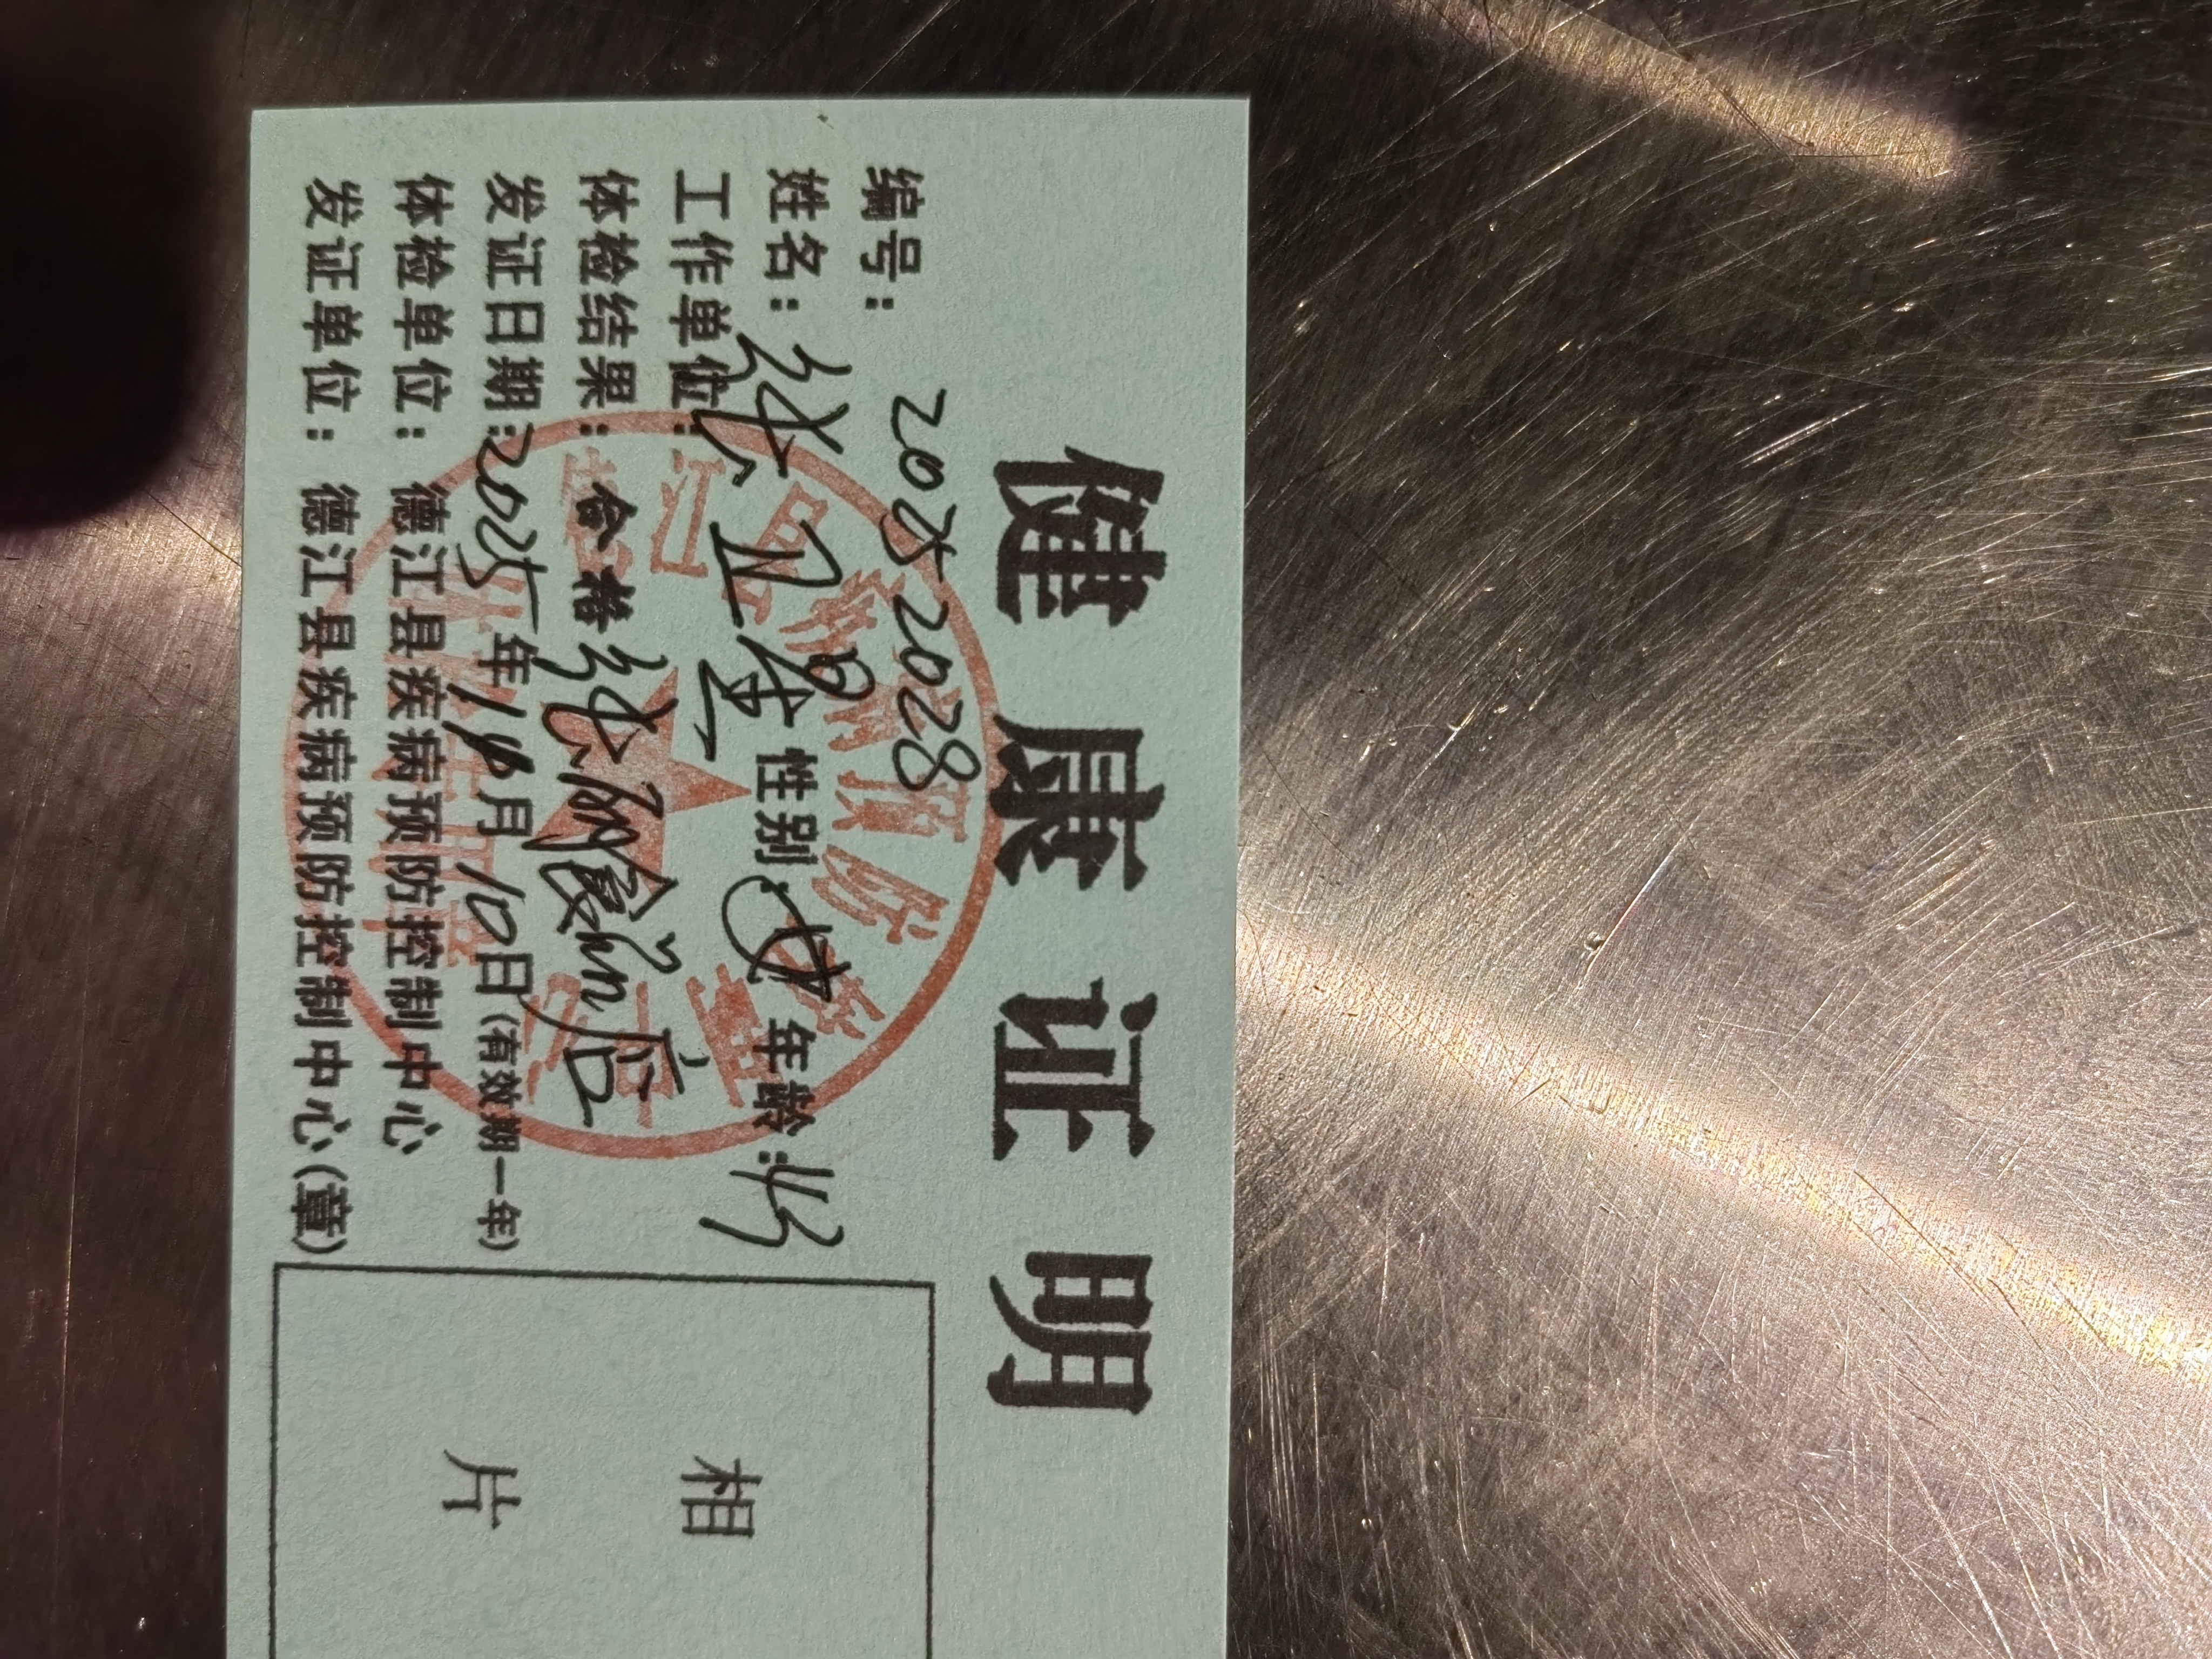 健康证明
编号: 20252028
姓名: 张 性别: 女 年龄:
工作单位: 张 餐饮店
体检结果: 合格
发证日期: 2025年 月10日(有效期一年)
体检单位: 德江县疾病预防控制中心
发证单位: 德江县疾病预防控制中心(章)
相
片